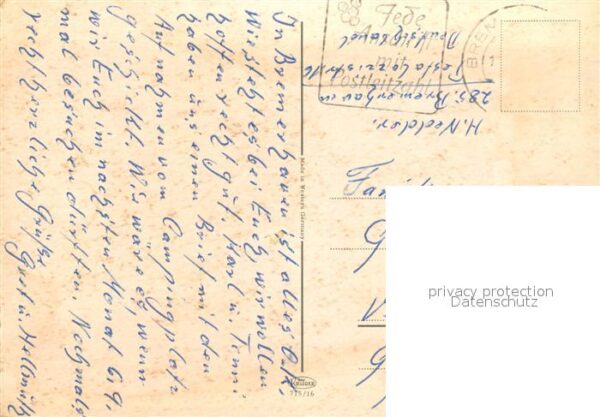 In Bremerhaven ist alles O.K.
Wie steht es bei Euch, wir wollen
hoffen recht gut. Karl u. Tenni
haben uns einen Brief mit den
Aufnahmen vom Campingplatz
geschickt. Wie wäre es wenn
wir Euch im nächsten Monat 6.9.
mal besuchen dürften. Nochmals
recht herzliche Grüße
Gret u. Hellmuth
H. Nedder.
285. Bremerhaven
Pestalozzistr.
Deutschland
Jede
mit
Postleitzahl
BREM
Fa
Made in Western Germany
KRÜGER
715/16
privacy protection
Datenschutz